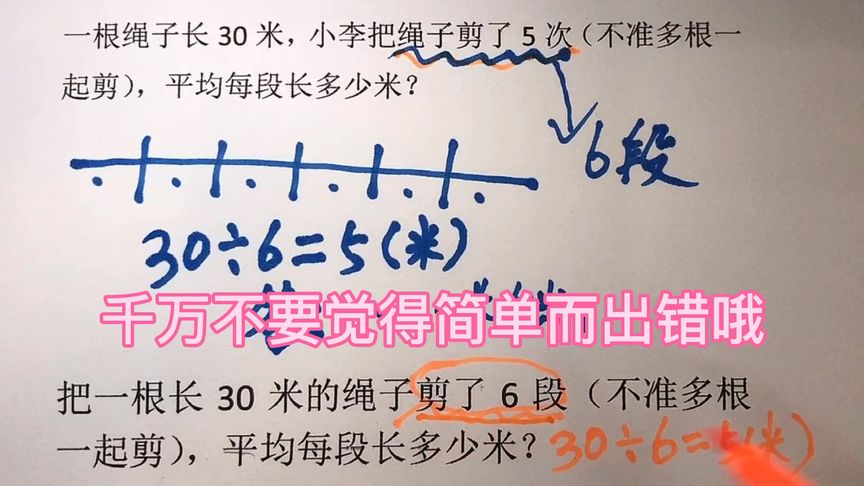 一根绳子长 30 米，小李把绳子剪了 5 次（不准多根一
起剪），平均每段长多少米？
6段
30÷6=5(米)
千万不要觉得简单而出错哦
把一根长 30 米的绳子剪了 6 段（不准多根
一起剪），平均每段长多少米？ 30÷6=5(米)